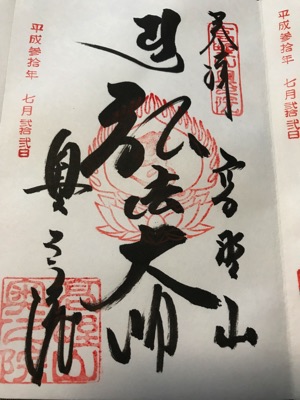 奉拝
高野山
遍
弘法大師
奥之院
平成参拾年 七月弐拾弐日
高野山
奥之院
平成参拾年 七月弐拾弐日